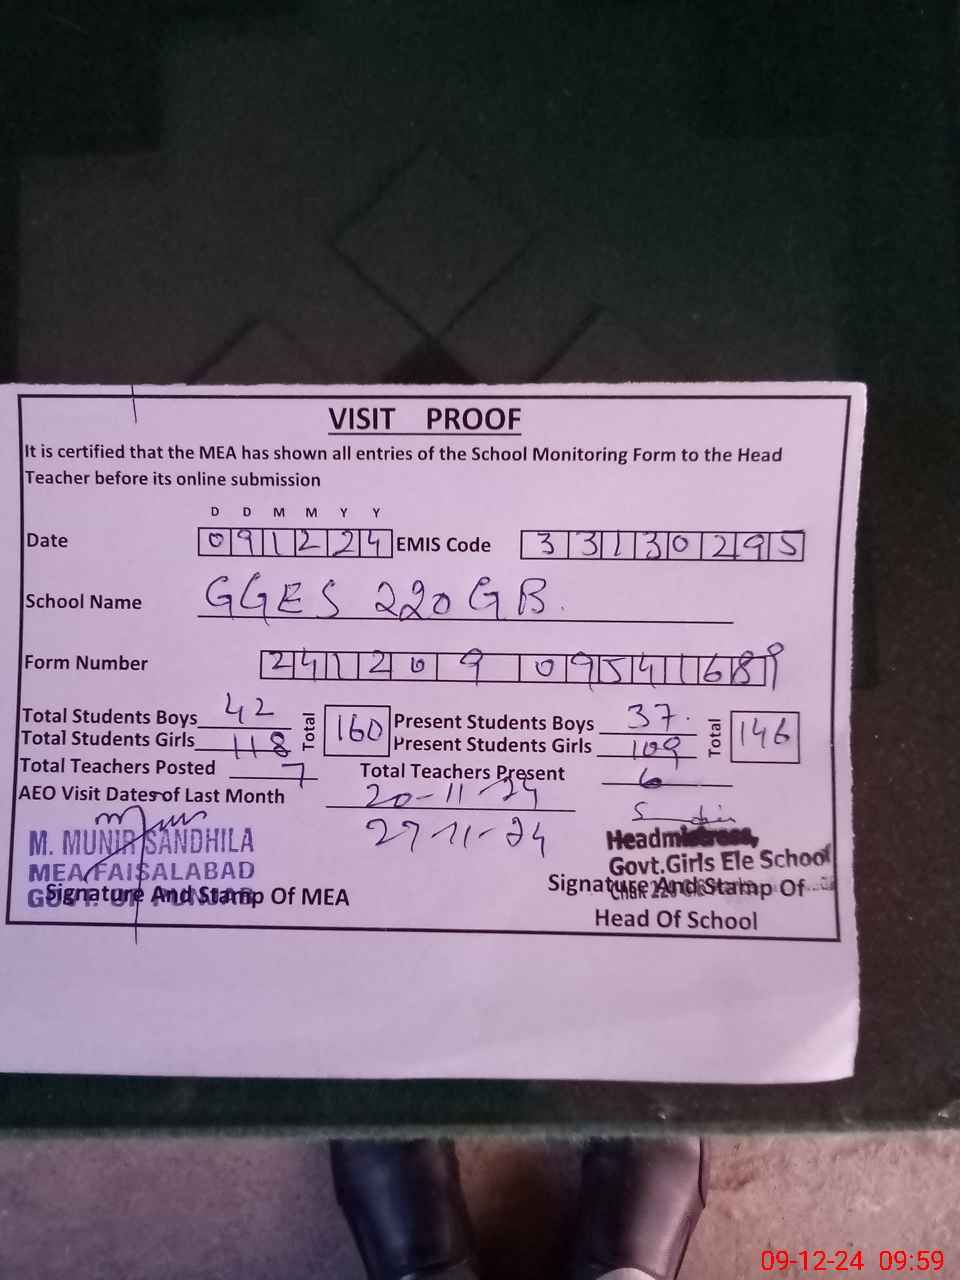 VISIT PROOF
It is certified that the MEA has shown all entries of the School Monitoring Form to the Head
Teacher before its online submission
D D M M Y Y
Date 091224 EMIS Code 33130295
School Name GGES 220 GB.
Form Number 241209 09541689
Total Students Boys 42 Total 160 Present Students Boys 37. Total 146
Total Students Girls 118 Present Students Girls 109
Total Teachers Posted 7 Total Teachers Present 6
AEO Visit Dates of Last Month 20-11-24
27-11-24
M. MUNIR SANDHILA
MEA FAISALABAD
GOVT. OF PUNJAB
Signature And Stamp Of MEA
Headmistress,
Govt.Girls Ele School
Signature And Stamp Of
Head Of School
09-12-24 09:59